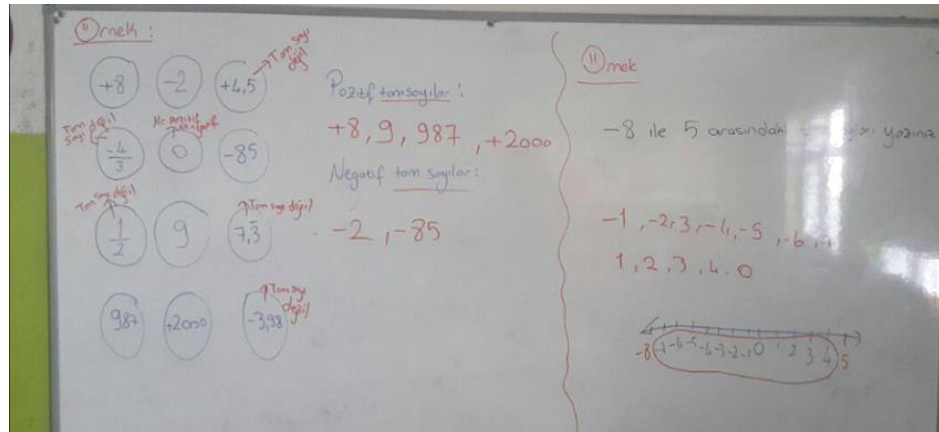 Örnek :
+8 -2 +4,5 Tam sayı değil
Tam değil sayı -4/3 Ne pozitif 0 -85
Tam sayı değil 1/2 9 7,3̄ Tam sayı değil
987 +2000 -3,98 Tam sayı değil
Pozitif tamsayılar :
+8, 9, 987, +2000
Negatif tam sayılar :
-2, -85
Örnek
-8 ile 5 arasındaki yazınız
-1, -2, 3, -4, -5, -6
1, 2, 3, 4. 0
-8 -7 -6 -5 -4 -3 -2 -1 0 1 2 3 4 5